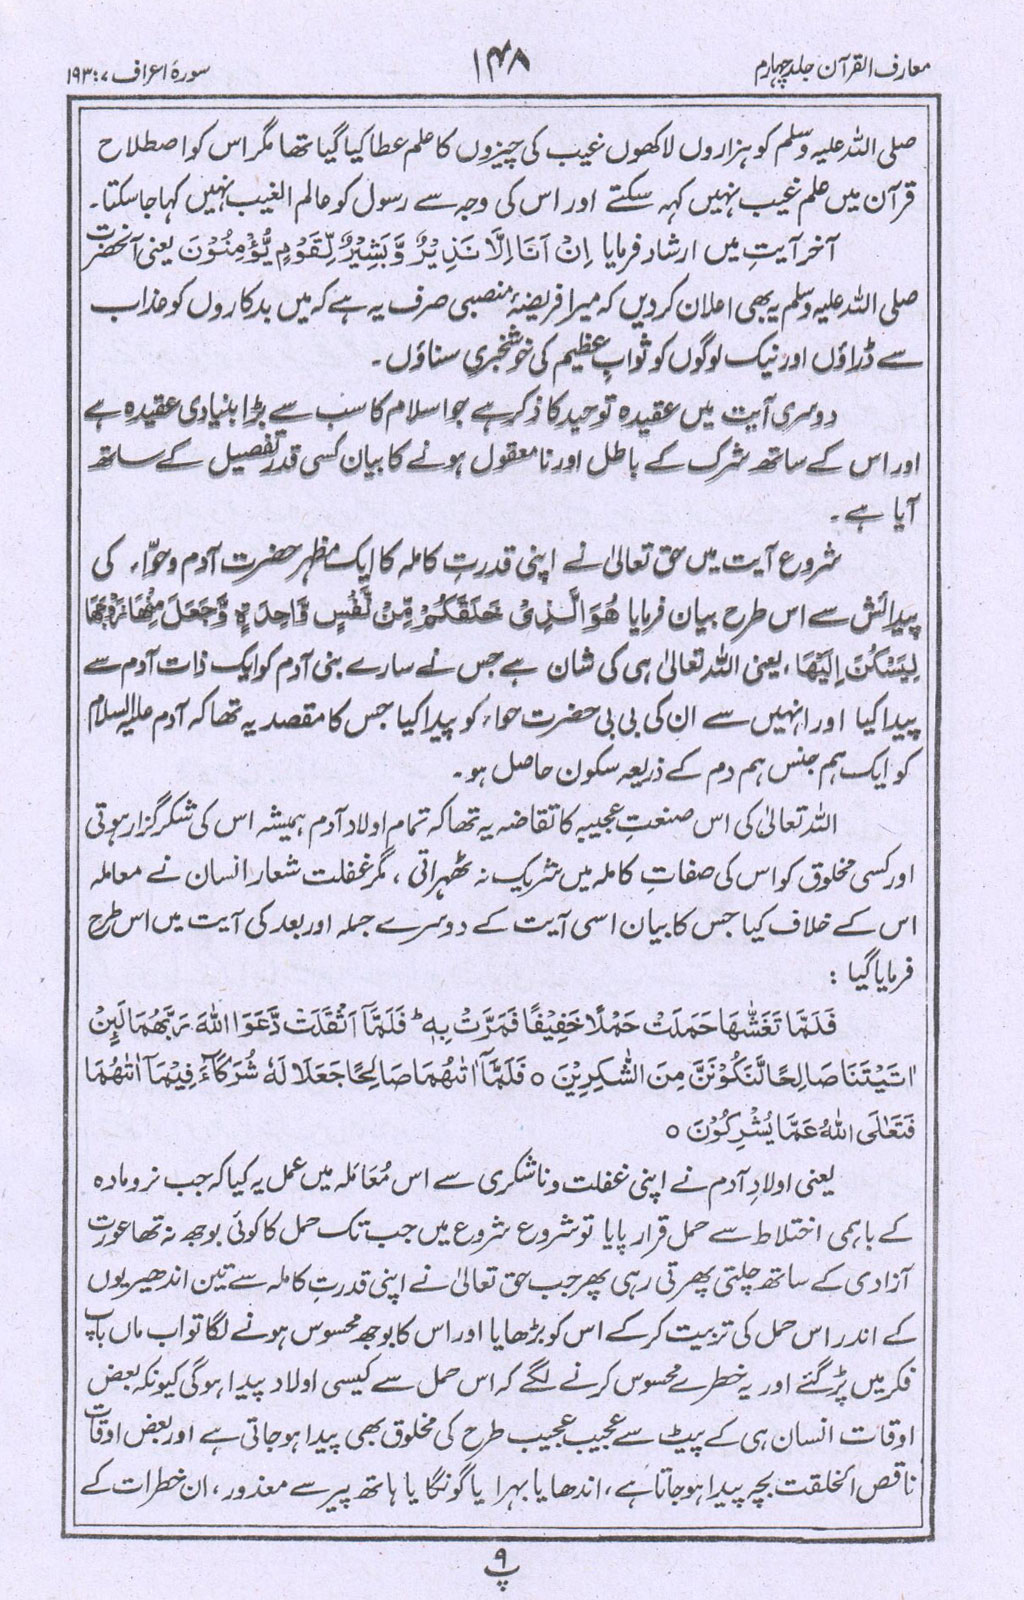 معارف القرآن جلد چہارم
۱۴۸
سورۂ اعراف ۷ : ۱۹۳
صلی اللہ علیہ وسلم کو ہزاروں لاکھوں غیب کی چیزوں کا علم عطا کیا گیا تھا مگر اس کو اصطلاح
قرآن میں علم غیب نہیں کہہ سکتے اور اس کی وجہ سے رسول کو عالم الغیب نہیں کہا جا سکتا۔
آخر آیت میں ارشاد فرمایا اِنْ اَنَا اِلَّا نَذِیْرٌ وَّبَشِیْرٌ لِّقَوْمٍ یُّؤْمِنُوْنَ یعنی آنحضرت
صلی اللہ علیہ وسلم یہ بھی اعلان کر دیں کہ میرا فریضۂ منصبی صرف یہ ہے کہ میں بدکاروں کو عذاب
سے ڈراؤں اور نیک لوگوں کو ثوابِ عظیم کی خوشخبری سناؤں۔
دوسری آیت میں عقیدہ توحید کا ذکر ہے جو اسلام کا سب سے بڑا بنیادی عقیدہ ہے
اور اس کے ساتھ شرک کے باطل اور نامعقول ہونے کا بیان کسی قدر تفصیل کے ساتھ
آیا ہے۔
شروع آیت میں حق تعالیٰ نے اپنی قدرتِ کاملہ کا ایک مظہر حضرت آدم و حوّاء کی
پیدائش سے اس طرح بیان فرمایا ھُوَ الَّذِیْ خَلَقَکُمْ مِّنْ نَّفْسٍ وَّاحِدَۃٍ وَّجَعَلَ مِنْھَا زَوْجَھَا
لِیَسْکُنَ اِلَیْھَا، یعنی اللہ تعالیٰ ہی کی شان ہے جس نے سارے بنی آدم کو ایک ذات آدم سے
پیدا کیا اور انہیں سے ان کی بی بی حضرت حواء کو پیدا کیا جس کا مقصد یہ تھا کہ آدم علیہ السلام
کو ایک ہم جنس ہم دم کے ذریعہ سکون حاصل ہو۔
اللہ تعالیٰ کی اس صنعتِ عجیبہ کا تقاضہ یہ تھا کہ تمام اولاد آدم ہمیشہ اس کی شکر گزار ہوتی
اور کسی مخلوق کو اس کی صفاتِ کاملہ میں شریک نہ ٹھہراتی، مگر غفلت شعار انسان نے معاملہ
اس کے خلاف کیا جس کا بیان اسی آیت کے دوسرے جملہ اور بعد کی آیت میں اس طرح
فرمایا گیا :
فَلَمَّا تَغَشّٰىھَا حَمَلَتْ حَمْلًا خَفِیْفًا فَمَرَّتْ بِہٖ ۚ فَلَمَّآ اَثْقَلَتْ دَّعَوَا اللّٰہَ رَبَّھُمَا لَئِنْ
اٰتَیْتَنَا صَالِحًا لَّنَکُوْنَنَّ مِنَ الشّٰکِرِیْنَ ○ فَلَمَّآ اٰتٰھُمَا صَالِحًا جَعَلَا لَہٗ شُرَکَآءَ فِیْمَآ اٰتٰھُمَا
فَتَعٰلَی اللّٰہُ عَمَّا یُشْرِکُوْنَ ○
یعنی اولادِ آدم نے اپنی غفلت و ناشکری سے اس مُعَاملہ میں عمل یہ کیا کہ جب نر و مادہ
کے باہمی اختلاط سے حمل قرار پایا تو شروع شروع میں جب تک حمل کا کوئی بوجھ نہ تھا عورت
آزادی کے ساتھ چلتی پھرتی رہی پھر جب حق تعالیٰ نے اپنی قدرتِ کاملہ سے تین اندھیریوں
کے اندر اس حمل کی تربیت کر کے اس کو بڑھایا اور اس کا بوجھ محسوس ہونے لگا تو اب ماں باپ
فکر میں پڑ گئے اور یہ خطرے محسوس کرنے لگے کہ اس حمل سے کیسی اولاد پیدا ہوگی کیونکہ بعض
اوقات انسان ہی کے پیٹ سے عجیب عجیب طرح کی مخلوق بھی پیدا ہو جاتی ہے اور بعض اوقات
ناقص الخلقت بچہ پیدا ہو جاتا ہے، اندھا یا بہرا یا گونگا یا ہاتھ پیر سے معذور، ان خطرات کے
پ ۹